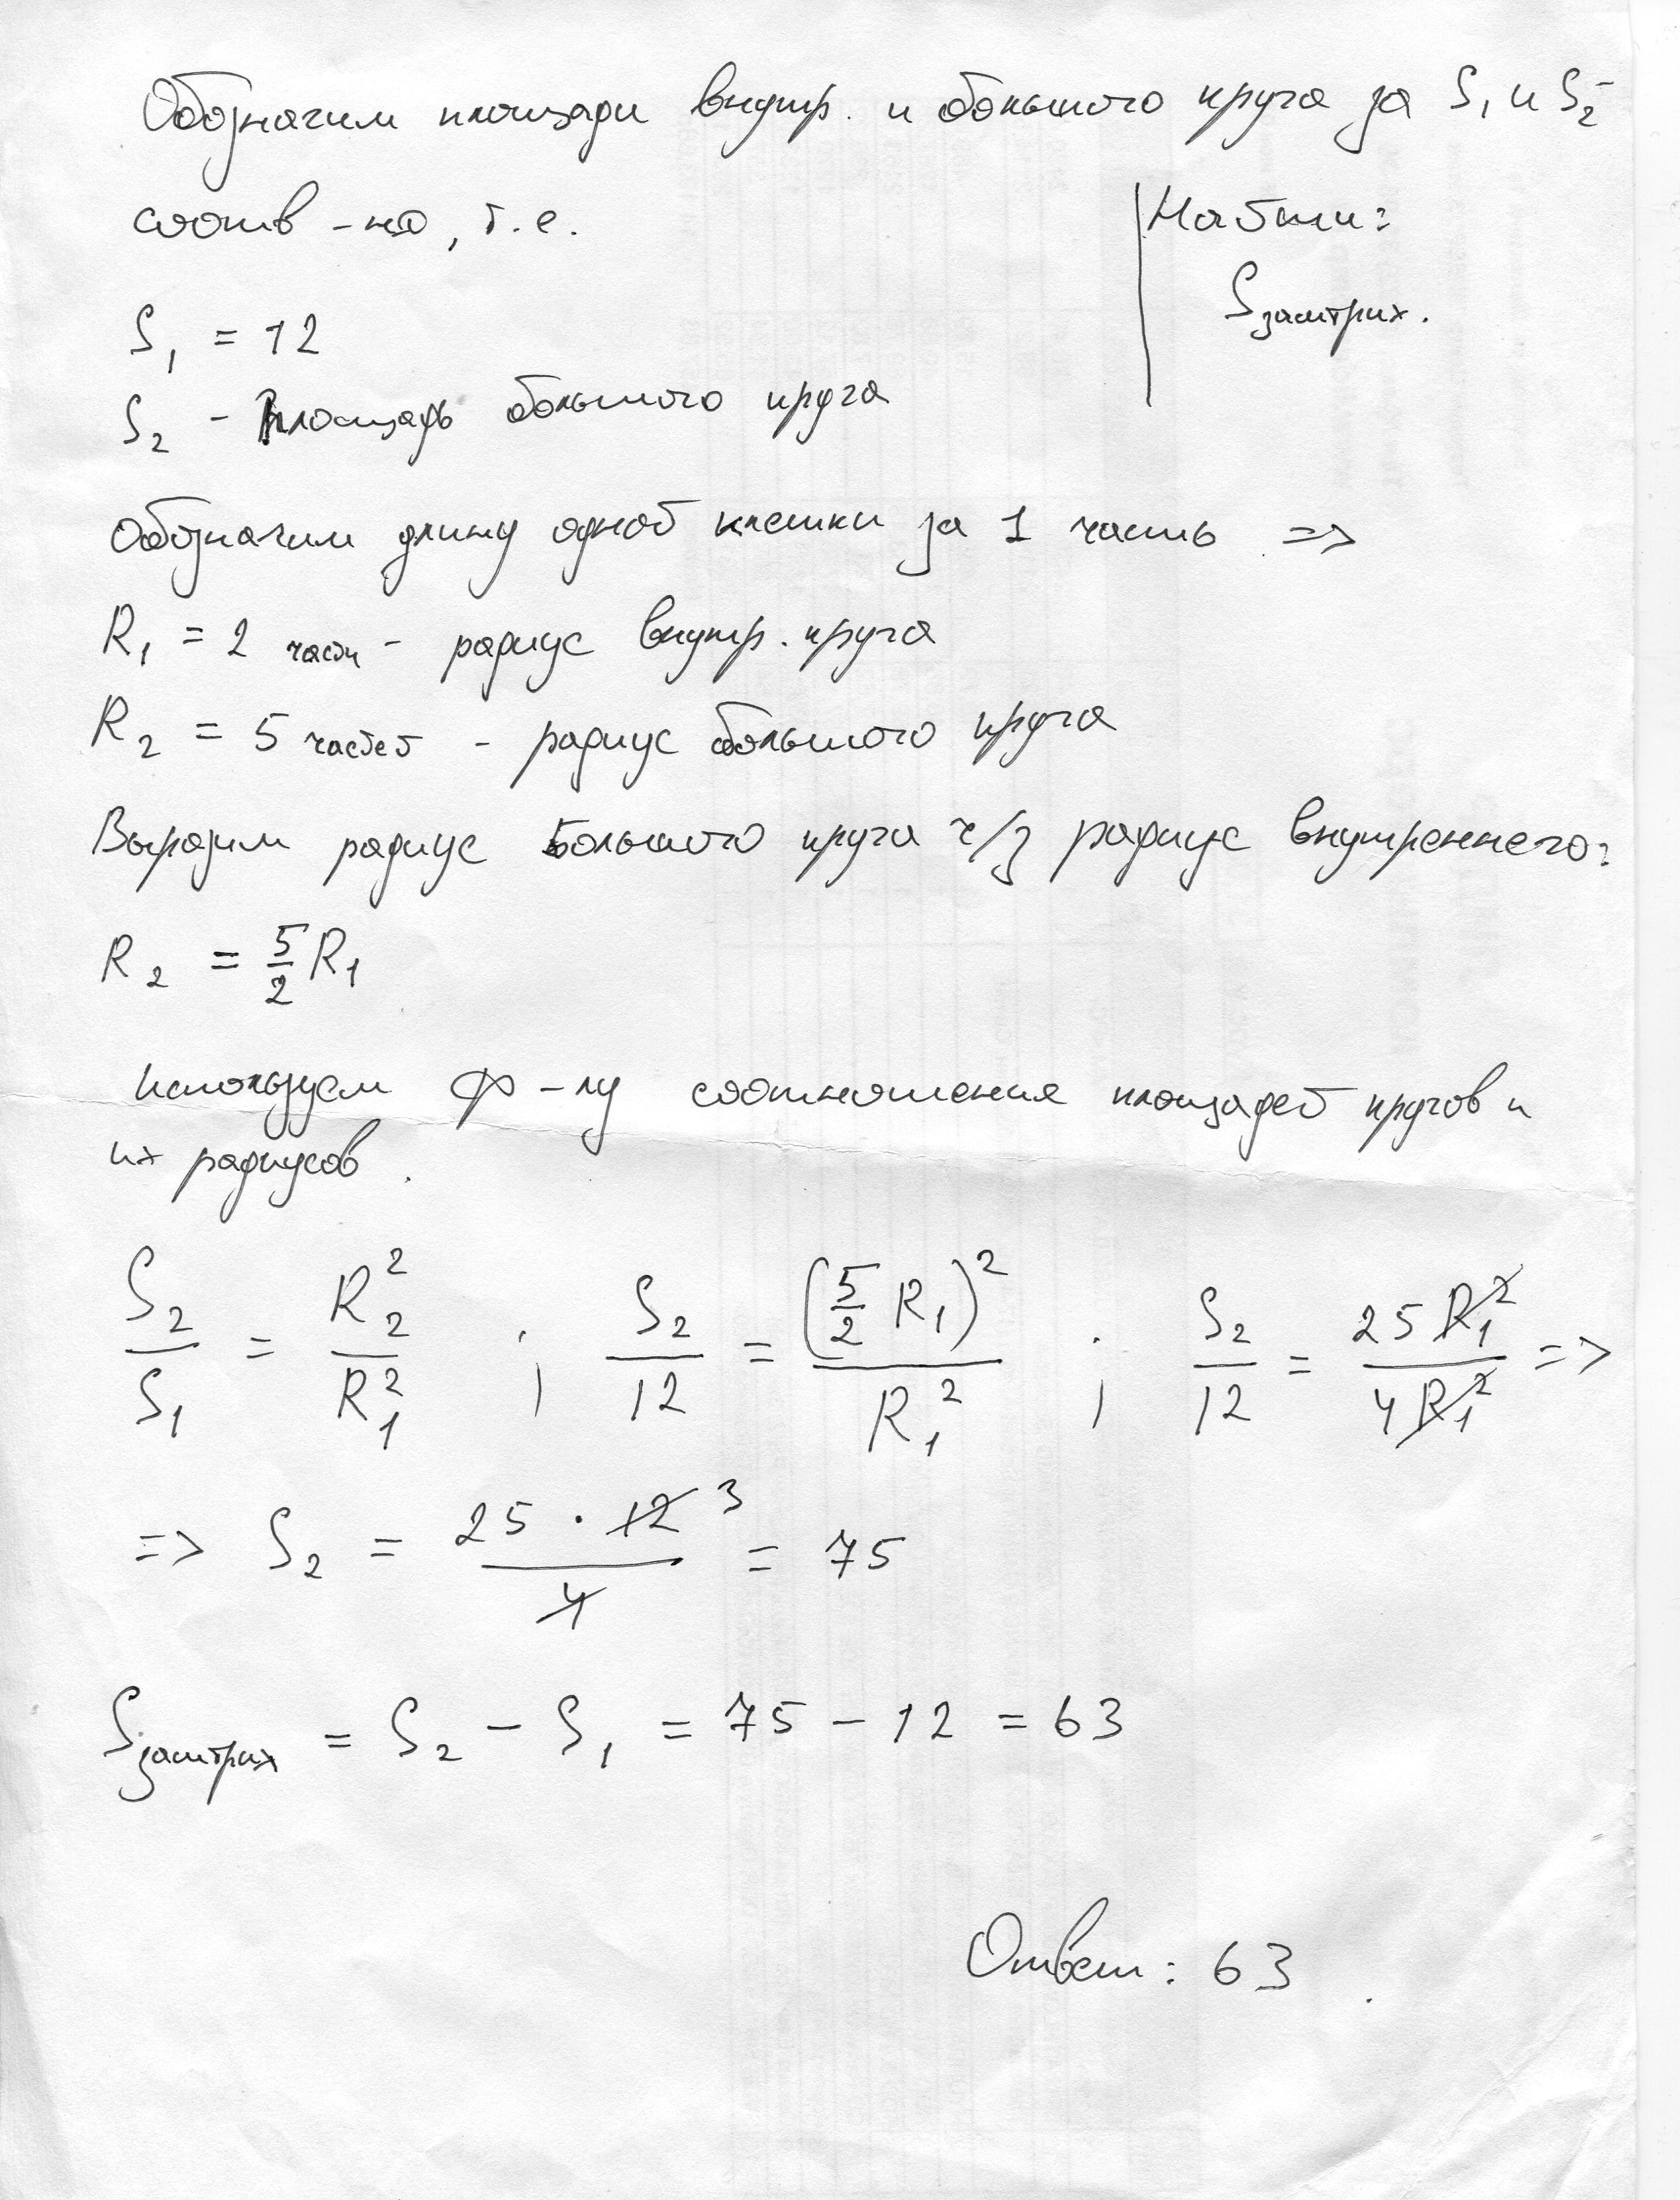 Обозначим площади внутр. и большого круга за S₁ и S₂
соотв-но, т.е.
Найти:
Sзаштрих.
S₁ = 12
S₂ - площадь большого круга
Обозначим длину одной клетки за 1 часть =>
R₁ = 2 части - радиус внутр. круга
R₂ = 5 частей - радиус большого круга
Выразим радиус большого круга ч/з радиус внутреннего:
R₂ = 5/2 R₁
Используем ф-лу соотношения площадей кругов и
их радиусов.
S₂/S₁ = R₂²/R₁² ; S₂/12 = (5/2 R₁)²/R₁² ; S₂/12 = 25R₁²/4R₁² =>
=> S₂ = 25 · 12 3/4 = 75
Sзаштрих = S₂ - S₁ = 75 - 12 = 63
Ответ: 63.